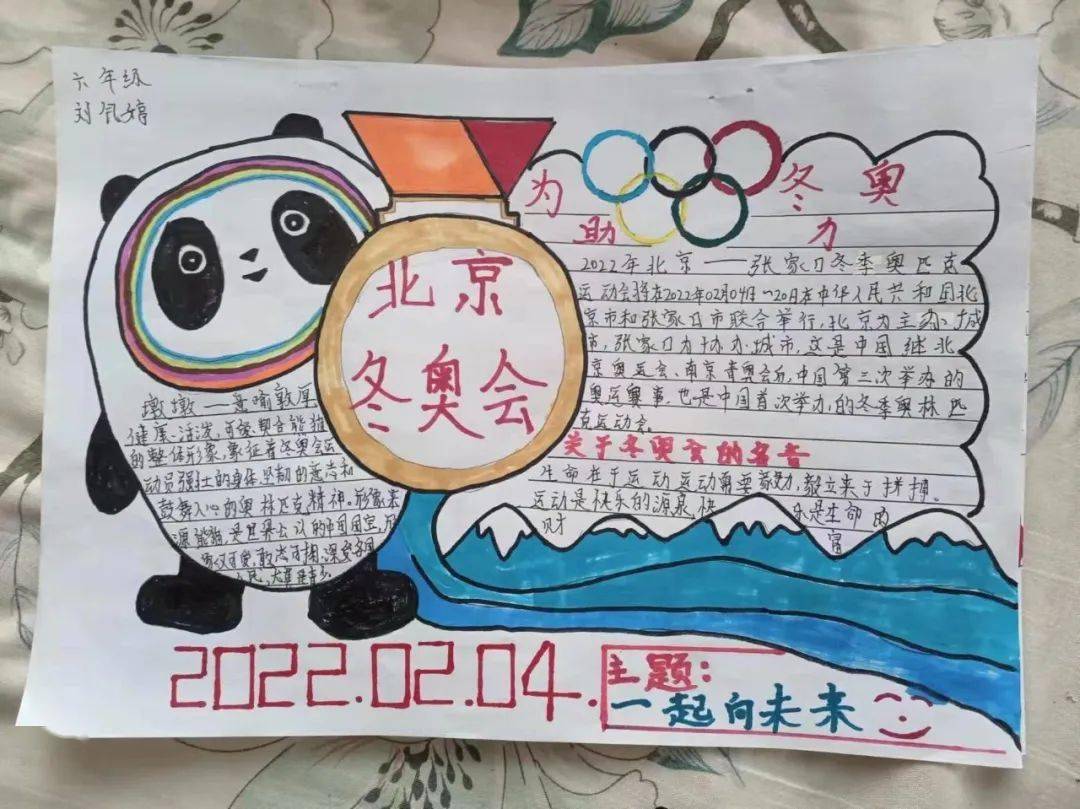 六年级
刘佩婷
北京
冬奥会
为 冬奥
助 力
2022年北京——张家口冬季奥匹克
运动会将在2022年02月04日~20日在中华人民共和国北
京市和张家口市联合举行,北京为主办城
市,张家口为协办城市,这是中国继北
京奥运会、南京青奥会后,中国第三次举办的
奥运奥事.也是中国首次举办,的冬季奥林匹
克运动会.
关于冬奥会的名言
生命在于运动,运动需要毅力,毅立来于拼搏.
运动是快乐的源泉,快 乐是生命的
财 富
墩墩——意喻敦厚
健康、活泼,可爱,契合能猫
的整体形象,象征着冬奥会运
动员强壮的身体坚韧的意志和
鼓舞人心的奥林匹克精神.形象来
源能猫是世界公认的中国国宝,形
象友可爱,敢 可掬,深受各国
人民,尤其是青少.
2022.02.04.
主题:
一起向未来